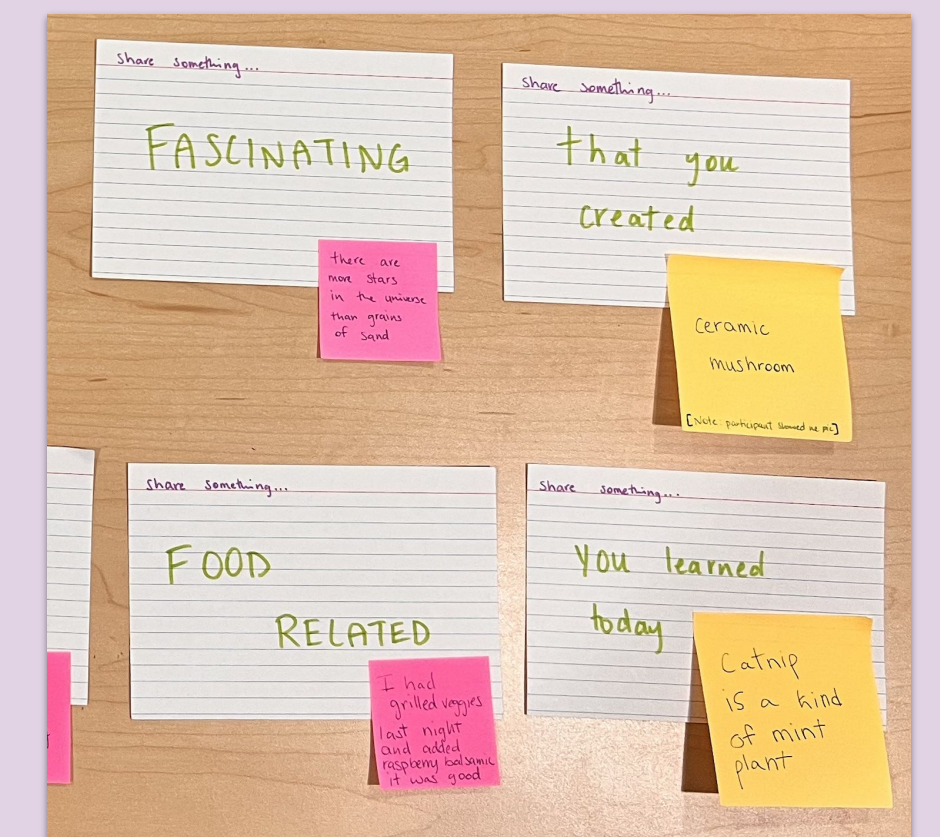 Share something...
FASCINATING
there are
more stars
in the universe
than grains
of sand
Share something...
that you
created
ceramic
mushroom
[Note: participant showed me pic]
Share something...
FOOD
RELATED
I had
grilled veggies
last night
and added
raspberry balsamic
it was good
Share something...
you learned
today
Catnip
is a kind
of mint
plant